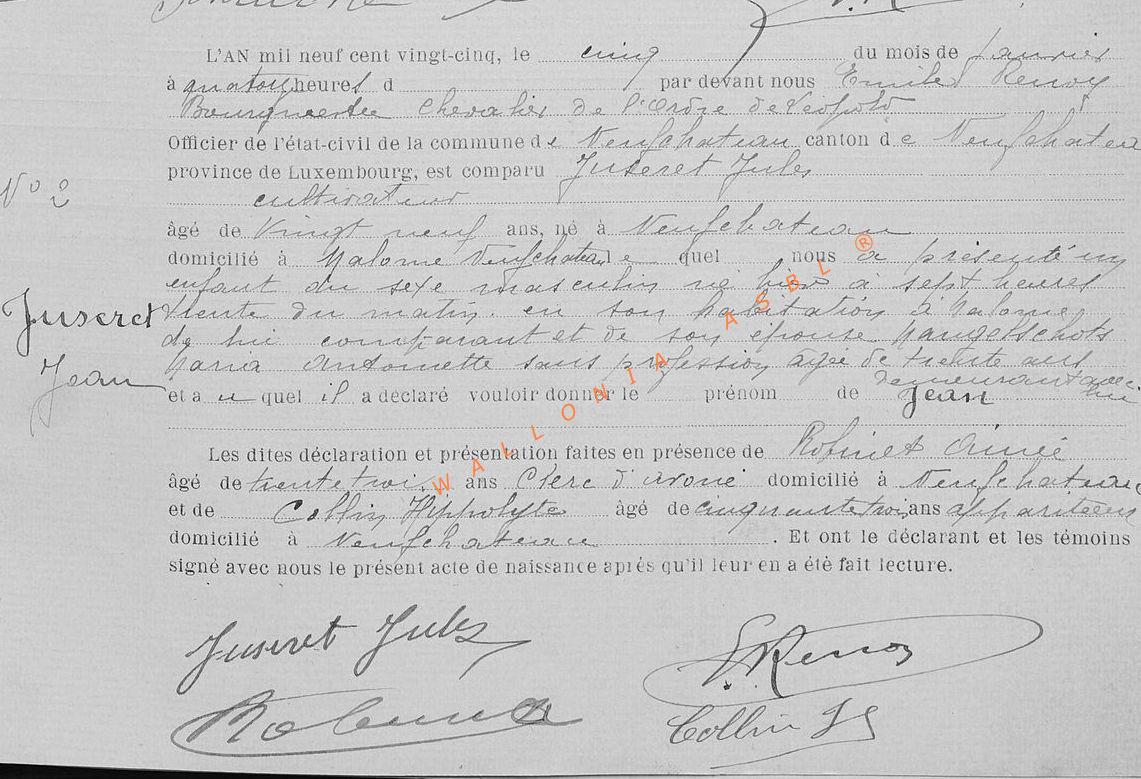 L'AN mil neuf cent vingt-cinq, le cinq du mois de Janvier
à quatorze heures d par devant nous Emile Renoy
Bourgmestre Chevalier de l'Ordre de Léopold
Officier de l'état-civil de la commune de Neufchateau canton de Neufchateau
province de Luxembourg, est comparu Juseret Jules
N° 2
cultivateur
âgé de Vingt neuf ans, né à Neufchateau
domicilié à Malome Neufchateau le quel nous a présenté un
enfant du sexe masculin né hier à sept heures
Juseret
trente du matin en son habitation à Malome
de lui comparant et de son épouse
Maria Antoinette sans profession agée de trente ans
Jean
demeurant avec lui
et a u quel il a déclaré vouloir donner le prénom de Jean
Les dites déclaration et présentation faites en présence de Robinet Aimé
âgé de trente trois ans Clerc d'avoué domicilié à Neufchateau
et de Collin Hippolyte âgé de cinquante trois ans appariteur
domicilié à Neufchateau. Et ont le déclarant et les témoins
signé avec nous le présent acte de naissance aprés qu'il leur en a été fait lecture.
Juseret Jules
E. Renoy
Collin
WALLONIA ASBL ®